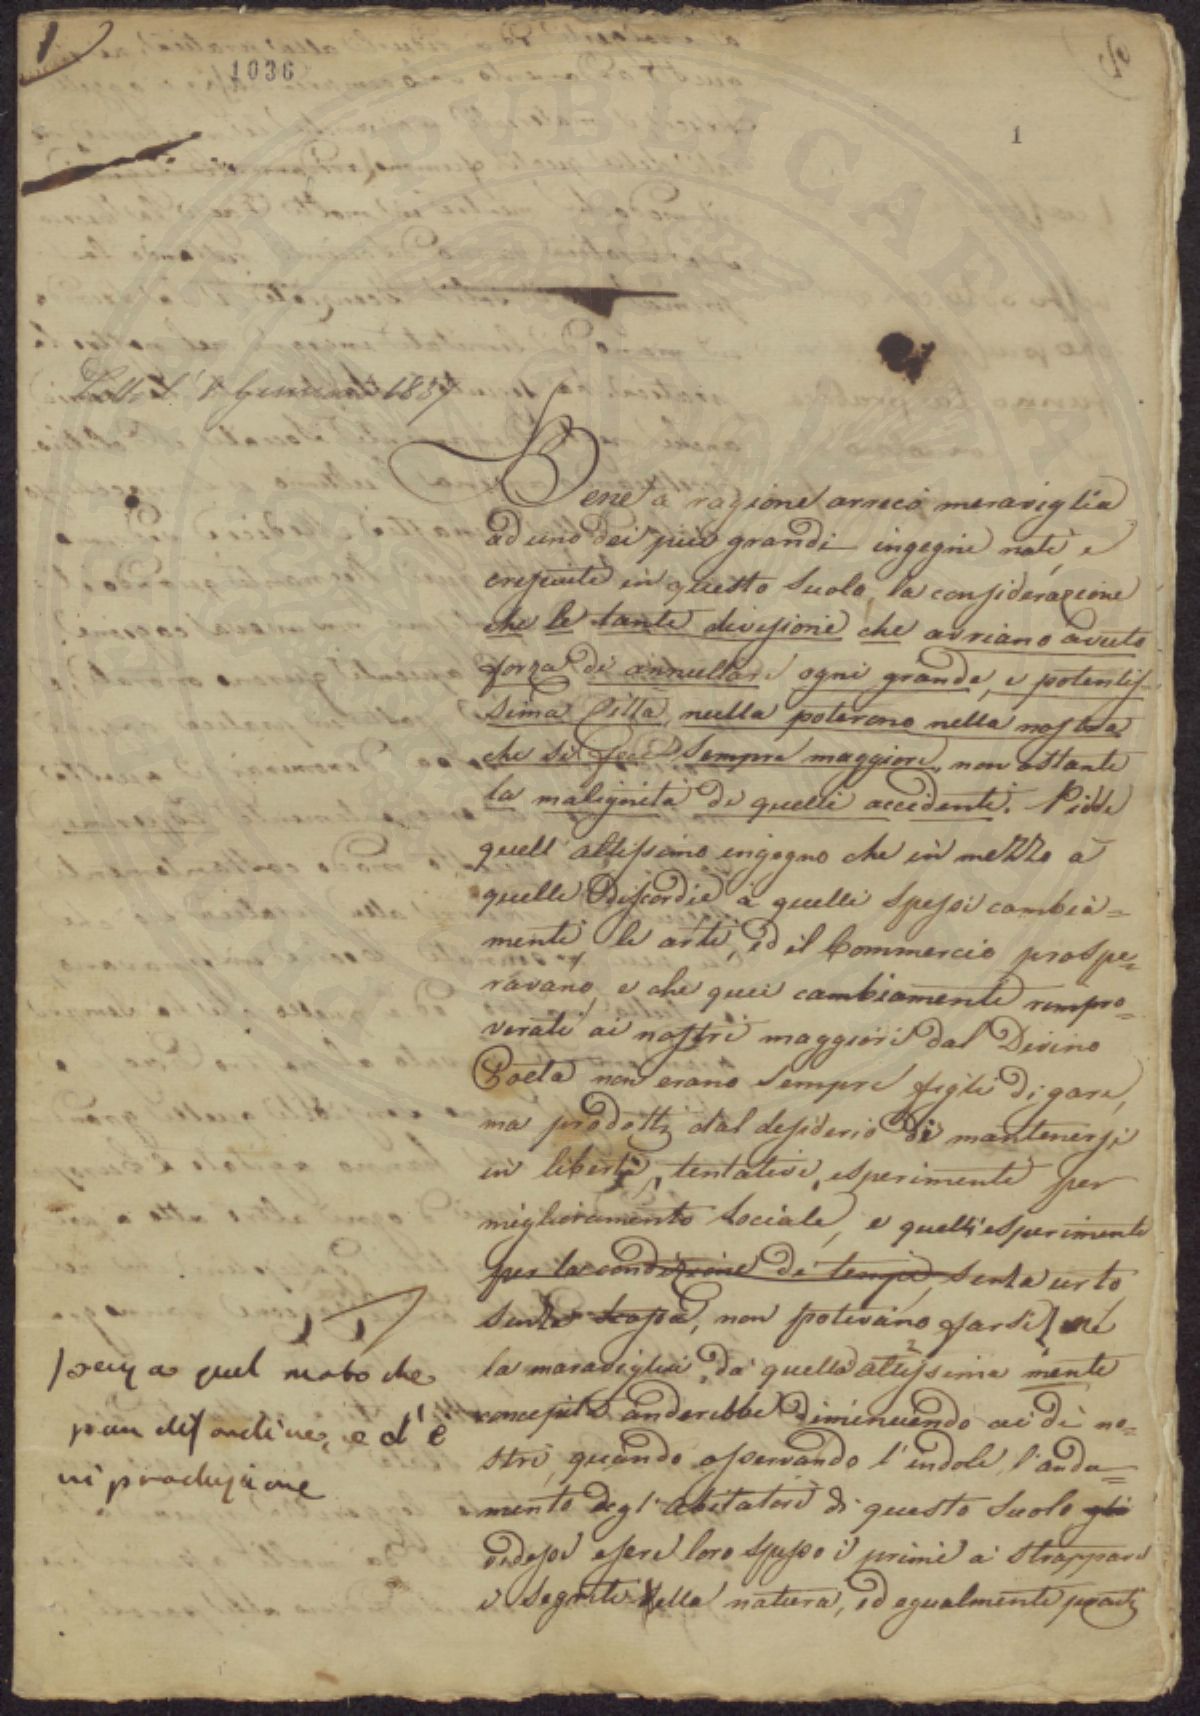 1
1036
1
Letto l' 8 Gennaio 1837
Bene a ragione arrecò meraviglia
ad uno dei più grandi ingegni nati, e
cresciuti in questo suolo, la considerazione
che le tante divisioni che avriano avuto
forza di annullare ogni grande, e potentis-
sima Città, nulla poterono nella nostra
che si fece sempre maggiore, non ostante
la malignità di quelli accidenti. Vidde
quell' altissimo ingegno che in mezzo a
quelle discordie a quelli spessi cambia=
menti le arti, ed il Commercio prospe=
ravano, e che quei cambiamenti rimpro=
verati ai nostri maggiori dal Divino
Poeta non erano sempre figli di gare,
ma prodotti dal desiderio di mantenersi
in libertà, tentativi, esperimenti per
miglioramento sociale, e quelli esperimenti
per la condizione de' tempi, senza urto,
senza scossa, non potevano farsi, né
la maraviglia da quella altissima mente
concepita anderebbe diminuendo ai dì no=
stri, quando osservando l'indole, l'anda=
mento degl' abitatori di questo suolo gli
vedessi essere loro spesso i primi a strappare
i segreti della natura, ed egualmente pronti
senza quel moto che
par disordine, ed è
riproduzione